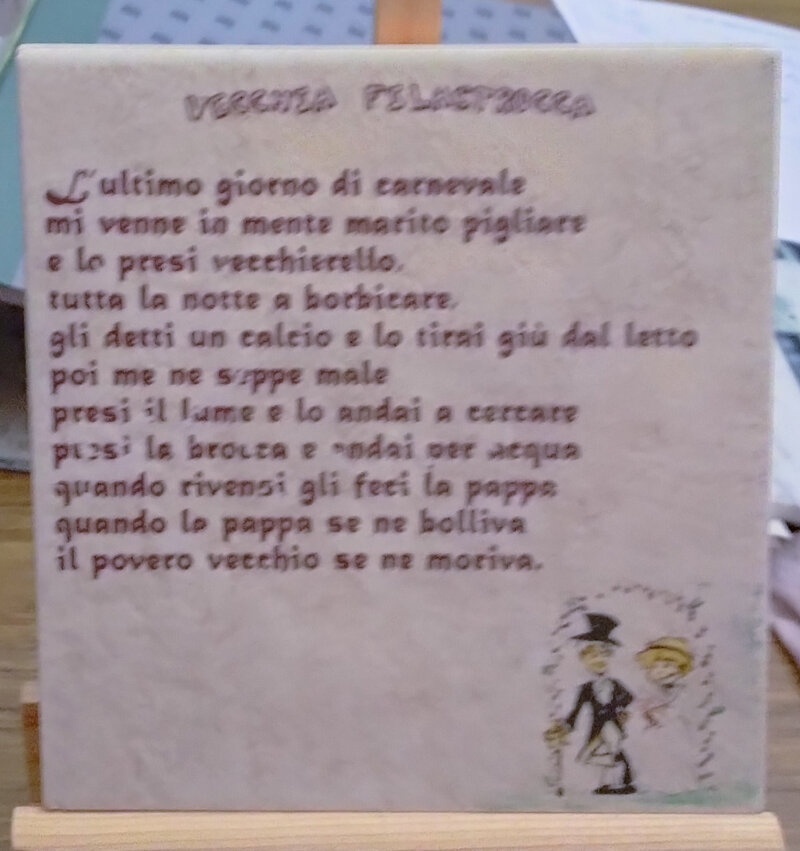 VECCHIA FILASTROCCA
L'ultimo giorno di carnevale
mi venne in mente marito pigliare
e lo presi vecchierello,
tutta la notte a borbicare.
gli detti un calcio e lo tirai giù dal letto
poi me ne seppe male
presi il lume e lo andai a cercare
presi la brocca e andai per acqua
quando rivensi gli feci la pappa
quando la pappa se ne bolliva
il povero vecchio se ne moriva.